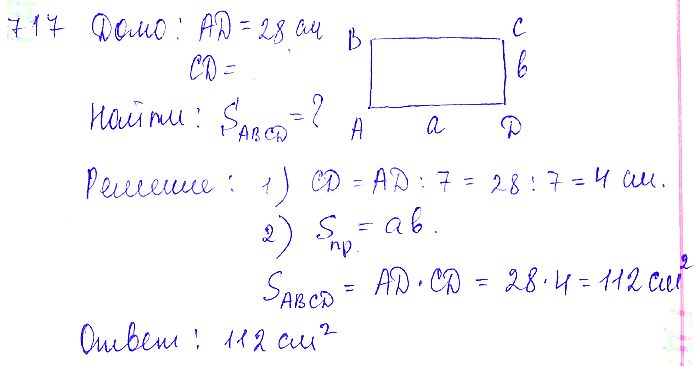 717 Дано: AD = 28 см
CD =
B C
b
A a D
Найти: S_ABCD = ?
Решение: 1) CD = AD : 7 = 28 : 7 = 4 см.
2) S_пр. = ab.
S_ABCD = AD · CD = 28 · 4 = 112 см²
Ответ: 112 см²